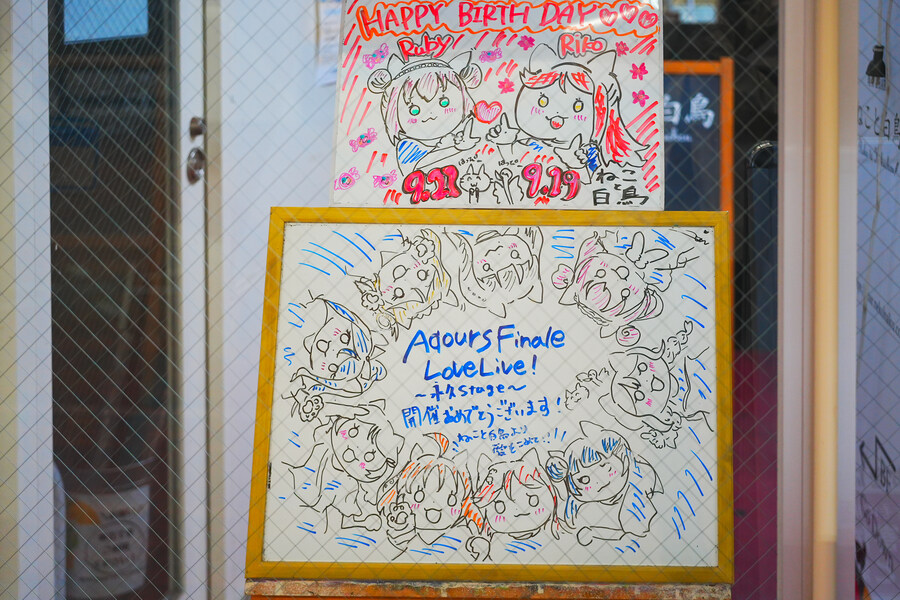 HAPPY BIRTHDAY
Ruby
Riko
9.21
9.19
ねこ
と
白鳥
白鳥
Aqours Finale
LoveLive!
～永久stage～
開催おめでとうございます!
ねこと白鳥より
愛をこめて!!